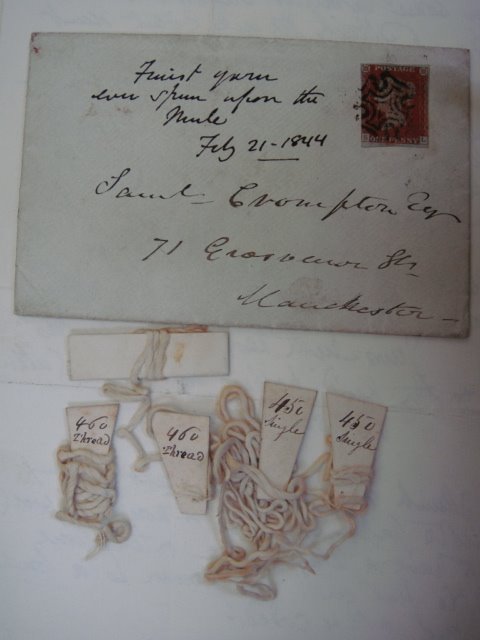 Finest yarn
ever spun upon the
Mule
Feby 21-1844
POSTAGE
ONE PENNY
L
Saml Crompton Esq
71 Grosvenor St
Manchester
460
Thread
460
Thread
450
Single
450
Single